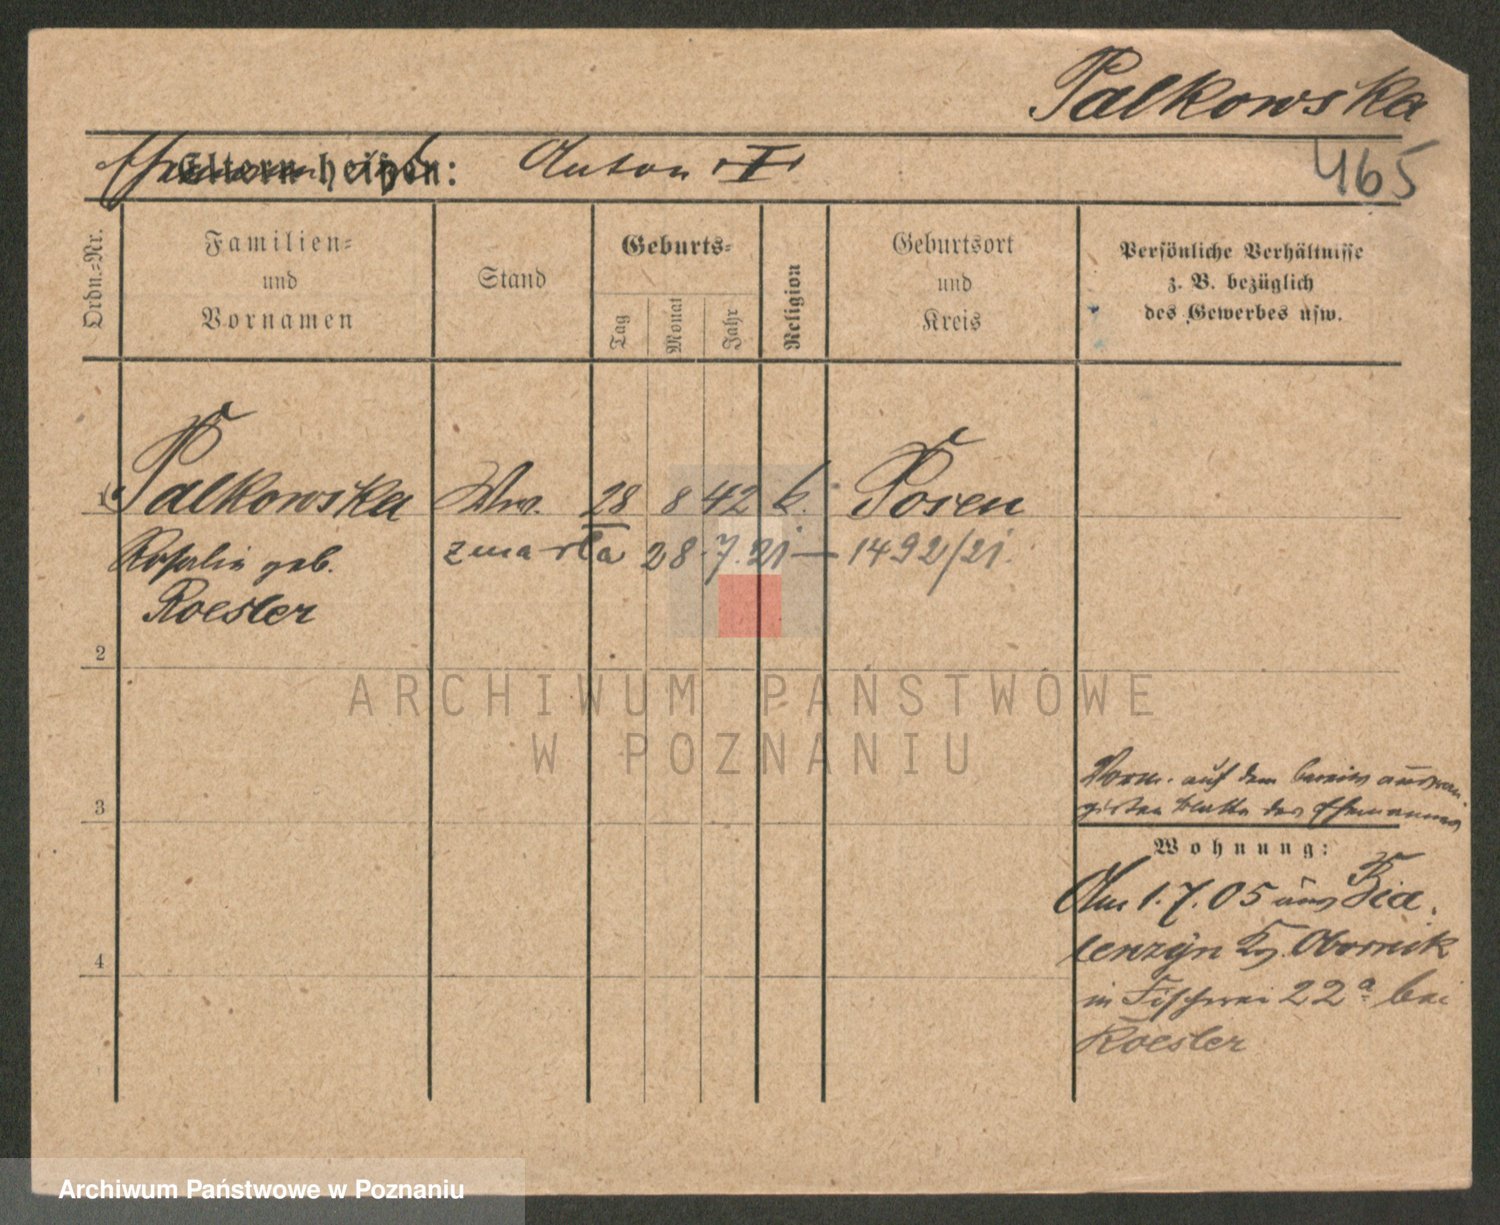 Palkowska
Eltern heißen: Anton †
465
Ordn.-Nr.
Familien-
und
Vornamen
Stand
Geburts-
Tag
Monat
Jahr
Religion
Geburtsort
und
Kreis
Persönliche Verhältnisse
z. B. bezüglich
des Gewerbes usw.
1 Palkowska Ww. 28 8 42 k. Posen
Rosalie geb. zmarła 28.7.21 — 1492/21.
Roesler
2
ARCHIWUM PAŃSTWOWE
W POZNANIU
Verm. auf dem bereits ausran-
3
girten Blatte des Ehemannes
Wohnung:
Am 1.7.05 aus Bia
lenzyn Kr. Obornik
4
in Fischerei 22a bei
Roesler
Archiwum Państwowe w Poznaniu